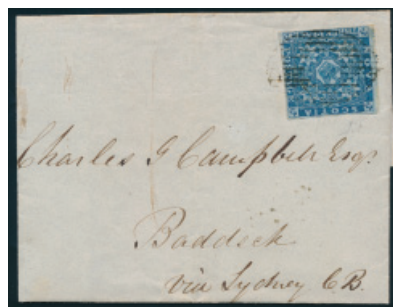 SCOTIA
Charles G Campbell Esqr
Baddeck
via Sydney C.B.